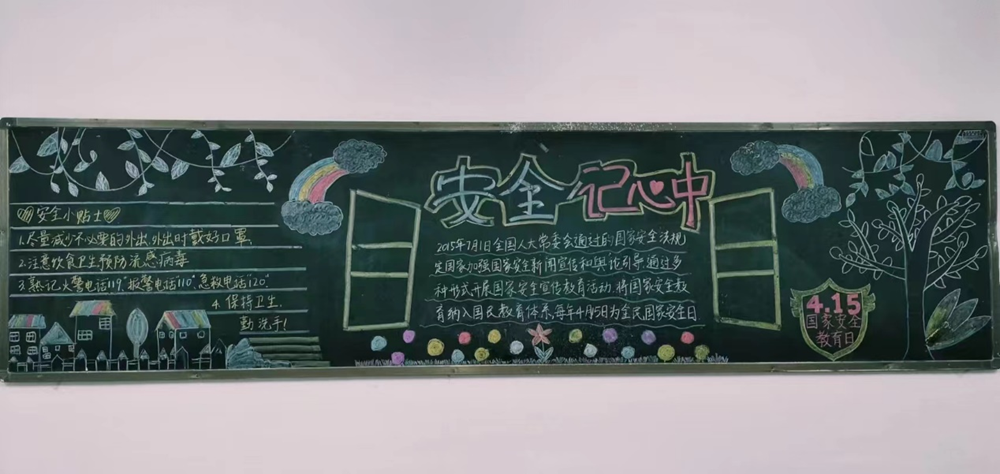 安全小贴士
1.尽量减少不必要的外出,外出时戴好口罩
2.注意饮食卫生预防流感病毒
3.熟记火警电话"119"报警电话"110"急救电话"120".
4.保持卫生.
勤洗手!
安全记心中
2015年7月1日全国人大常委会通过的国家安全法规
定国家加强国家安全新闻宣传和舆论引导通过多
种形式开展国家安全宣传教育活动.将国家安全教
育纳入国民教育体系.每年4月5日为全民国家安全日
4.15
国家安全
教育日